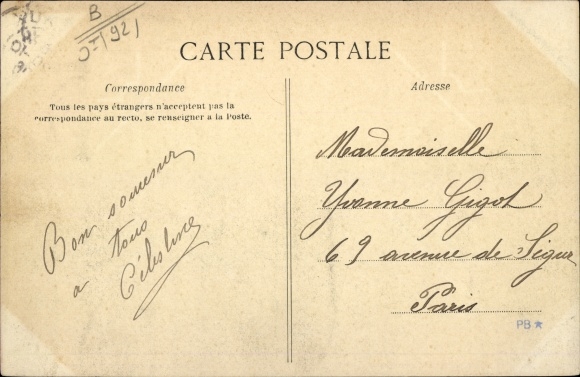 B
0-1921
CARTE POSTALE
Correspondance
Tous les pays étrangers n'acceptent pas la
correspondance au recto, se renseigner à la Poste.
Bon souvenir
a tous
Célestine
Adresse
Mademoiselle
Yvonne Gigot
69 avenue de Ségur
Paris
PB★